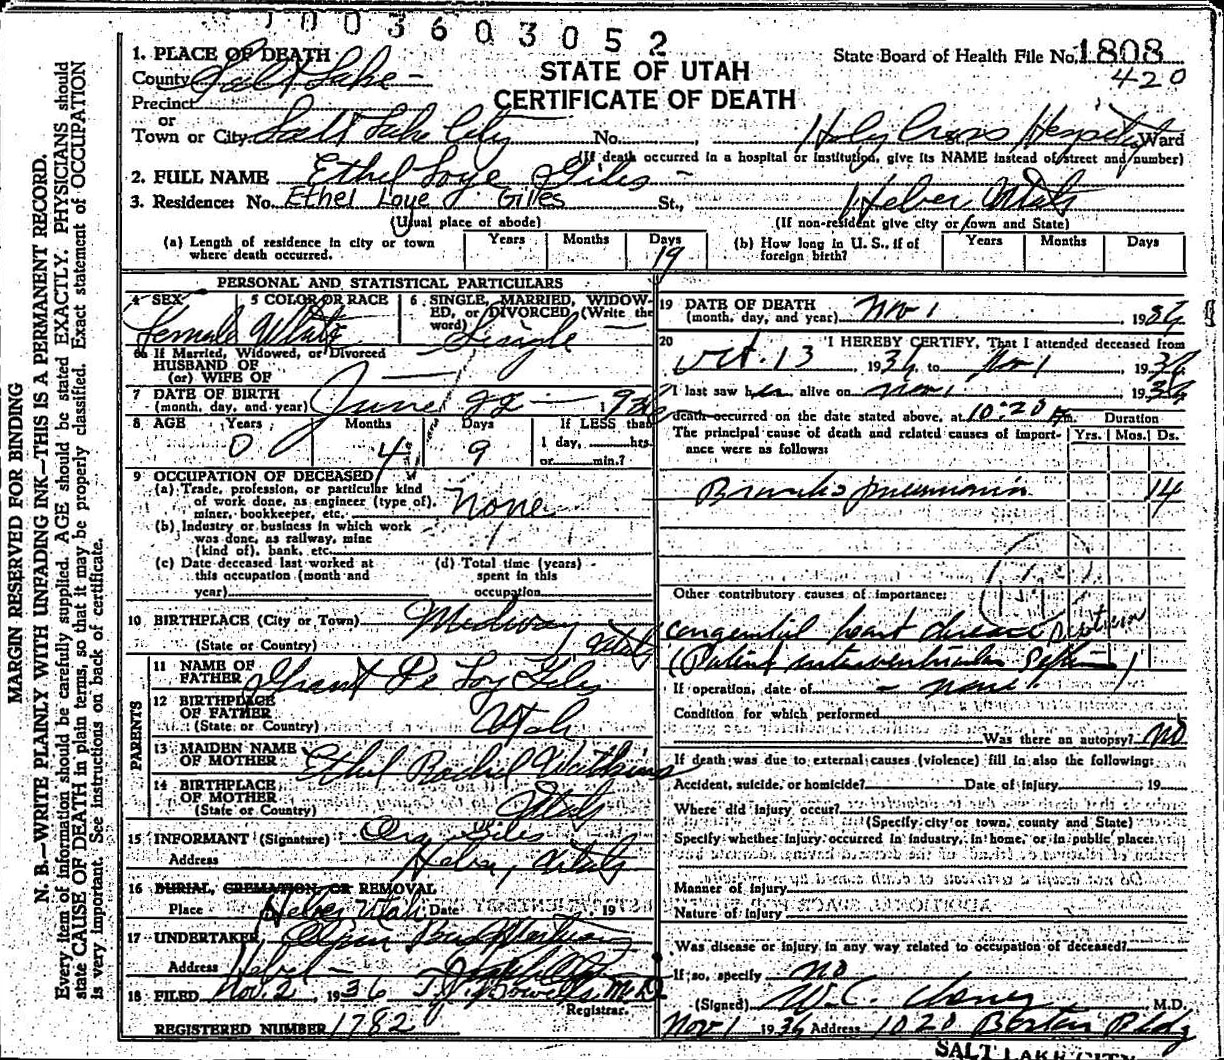 0 0 3 6 0 3 0 5 2
State Board of Health File No. 1808
420
STATE OF UTAH
CERTIFICATE OF DEATH
1. PLACE OF DEATH
County Salt Lake
Precinct
or
Town or City Salt Lake City No. Holy Cross Hospital Ward
(If death occurred in a hospital or institution, give its NAME instead of street and number)
2. FULL NAME Ethel Loye Giles
3. Residence: No. Ethel Loye Giles St., Heber, Utah
(Usual place of abode) (If non-resident give city or town and State)
(a) Length of residence in city or town where death occurred. Years Months Days 19
(b) How long in U. S., if of foreign birth? Years Months Days
PERSONAL AND STATISTICAL PARTICULARS
4 SEX Female
5 COLOR OR RACE White
6 SINGLE, MARRIED, WIDOWED, or DIVORCED (Write the word) Single
6a If Married, Widowed, or Divorced
HUSBAND OF
(or) WIFE OF
7 DATE OF BIRTH
(month, day, and year) June 22 - 1936
8 AGE Years 0 Months 4 Days 9 If LESS than
1 day, hrs.
or min.?
9 OCCUPATION OF DECEASED
(a) Trade, profession, or particular kind
of work done, as engineer (type of),
miner, bookkeeper, etc. None
(b) Industry or business in which work
was done, as railway, mine
(kind of), bank, etc.
(c) Date deceased last worked at
this occupation (month and
year)
(d) Total time (years)
spent in this
occupation
10 BIRTHPLACE (City or Town) Midway
(State or Country) Utah
PARENTS
11 NAME OF
FATHER Grant Le Loy Giles
12 BIRTHPLACE
OF FATHER
(State or Country) Utah
13 MAIDEN NAME
OF MOTHER Ethel Watkins
14 BIRTHPLACE
OF MOTHER
(State or Country) Utah
15 INFORMANT (Signature) Giles
Address Heber, Utah
16 BURIAL, CREMATION, OR REMOVAL
Place Heber Utah Date 19
17 UNDERTAKER
Address Heber
18 FILED Nov. 2 1936 M.D.
Registrar.
REGISTERED NUMBER 1782
19 DATE OF DEATH
(month, day, and year) Nov 1 1936
20 I HEREBY CERTIFY, That I attended deceased from
Oct. 13 1936 to Nov 1 1936
I last saw her alive on Nov 1 1936
death occurred on the date stated above, at 10:20 m.
Duration
The principal cause of death and related causes of importance were as follows: Yrs. Mos. Ds.
Broncho pneumonia 14
Other contributory causes of importance:
Congenital heart disease
(Patent interventricular septum)
If operation, date of none
Condition for which performed
Was there an autopsy? no
If death was due to external causes (violence) fill in also the following:
Accident, suicide, or homicide? Date of injury 19
Where did injury occur?
(Specify city or town, county and State)
Specify whether injury occurred in industry, in home, or in public place:
Manner of injury
Nature of injury
Was disease or injury in any way related to occupation of deceased?
If so, specify no
(Signed) W. C. M.D.
Nov 1 1936 Address 1020 Bldg
SALT LAKE CITY
MARGIN RESERVED FOR BINDING
N. B.—WRITE PLAINLY WITH UNFADING INK—THIS IS A PERMANENT RECORD.
Every item of information should be carefully supplied. AGE should be stated EXACTLY. PHYSICIANS should
state CAUSE OF DEATH in plain terms, so that it may be properly classified. Exact statement of OCCUPATION
is very important. See instructions on back of certificate.